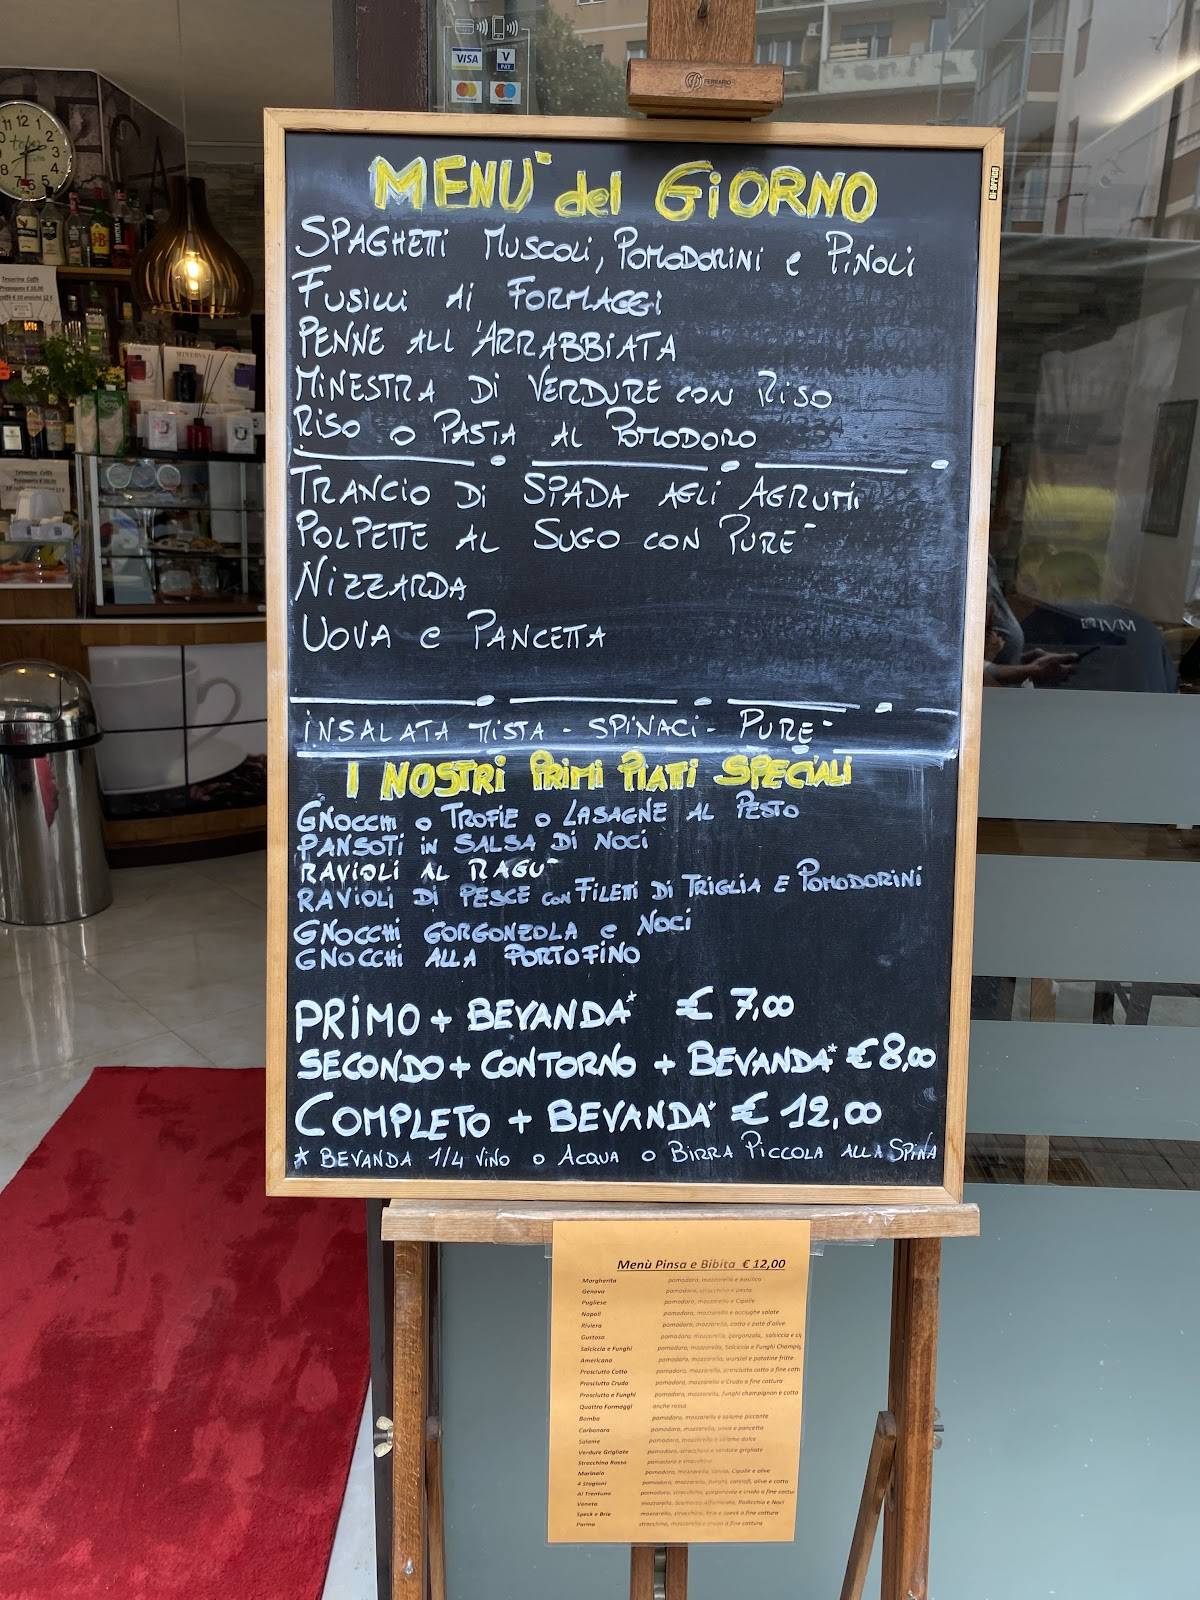 VISA
V PAY
FERRARIO
MENU` del GIORNO
SPAGHETTI MUSCOLI, POMODORINI e PINOLI
FUSILLI AI FORMAGGI
PENNE ALL'ARRABBIATA
MINESTRA DI VERDURE CON RISO
RISO O PASTA AL POMODORO
TRANCIO DI SPADA AGLI AGRUMI
POLPETTE AL SUGO CON PURE`
NIZZARDA
UOVA e PANCETTA
INSALATA MISTA - SPINACI - PURE`
I NOSTRI PRIMI PIATI SPECIALI
GNOCCHI O TROFIE O LASAGNE AL PESTO
PANSOTI IN SALSA DI NOCI
RAVIOLI AL RAGU`
RAVIOLI DI PESCE CON FILETTI DI TRIGLIA E POMODORINI
GNOCCHI GORGONZOLA e NOCI
GNOCCHI ALLA PORTOFINO
PRIMO + BEVANDA* € 7,00
SECONDO + CONTORNO + BEVANDA* € 8,00
COMPLETO + BEVANDA* € 12,00
* BEVANDA 1/4 VINO O ACQUA O BIRRA PICCOLA ALLA SPINA
Menù Pinsa e Bibita € 12,00
Margherita pomodoro, mozzarella e basilico
Genova pomodoro, stracchino e pesto
Pugliese pomodoro, mozzarella e Cipolle
Napoli pomodoro, mozzarella e acciughe salate
Riviera pomodoro, mozzarella, cotto e patè d'olive
Gustosa pomodoro, mozzarella, gorgonzola, salsiccia e
Salsiccia e Funghi pomodoro, mozzarella, Salsiccia e Funghi
Americana pomodoro, mozzarella, wurstel e patatine fritte
Prosciutto Cotto pomodoro, mozzarella, prosciutto cotto a fine
Prosciutto Crudo pomodoro, mozzarella e Crudo a fine cottura
Prosciutto e Funghi pomodoro, mozzarella, funghi champignon e cotto
Quattro Formaggi anche rossa
Bomba pomodoro, mozzarella e salame piccante
Carbonara pomodoro, mozzarella, uova e pancetta
Salame pomodoro, mozzarella e salame dolce
Verdure Grigliate pomodoro, stracchino e verdure grigliate
Stracchino Rossa pomodoro e stracchino
Marinaia pomodoro, mozzarella, Cipolle e olive
4 Stagioni pomodoro, mozzarella, funghi, carciofi, olive e cotto
Al Trentuno pomodoro, stracchino, gorgonzola e crudo a fine
Veneta mozzarella, Radicchio e Noci
Speck e Brie mozzarella, stracchino, brie e speck a fine cottura
Parma stracchino, mozzarella e crudo a fine cottura